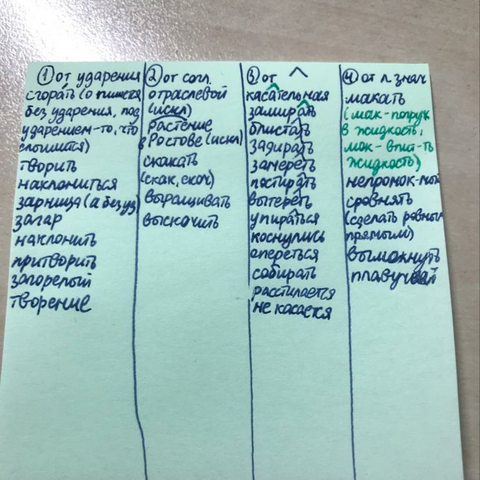 ① от ударения
сгорать (о пишется
без ударения, под
ударением - то, что
слышится)
творить
наклониться
зарница (а без уд)
загар
наклонить
притворить
загорелый
творение
② от согл.
отраслевой
(искл)
растение
Ростове (искл)
скакать
(скак, скоч)
выращивать
выскочить
③ от ^
касательная
замирать
блистать
задирать
замереть
постирать
вытереть
упираться
коснулись
опереться
собирать
расстилается
не касается
④ от л. знач
макать
(мак - погруж
в жидкость,
мок - впит-ть
жидкость)
непромок-мый
сровнять
(сделать ровным
прямым)
вымокнуть
плавучей